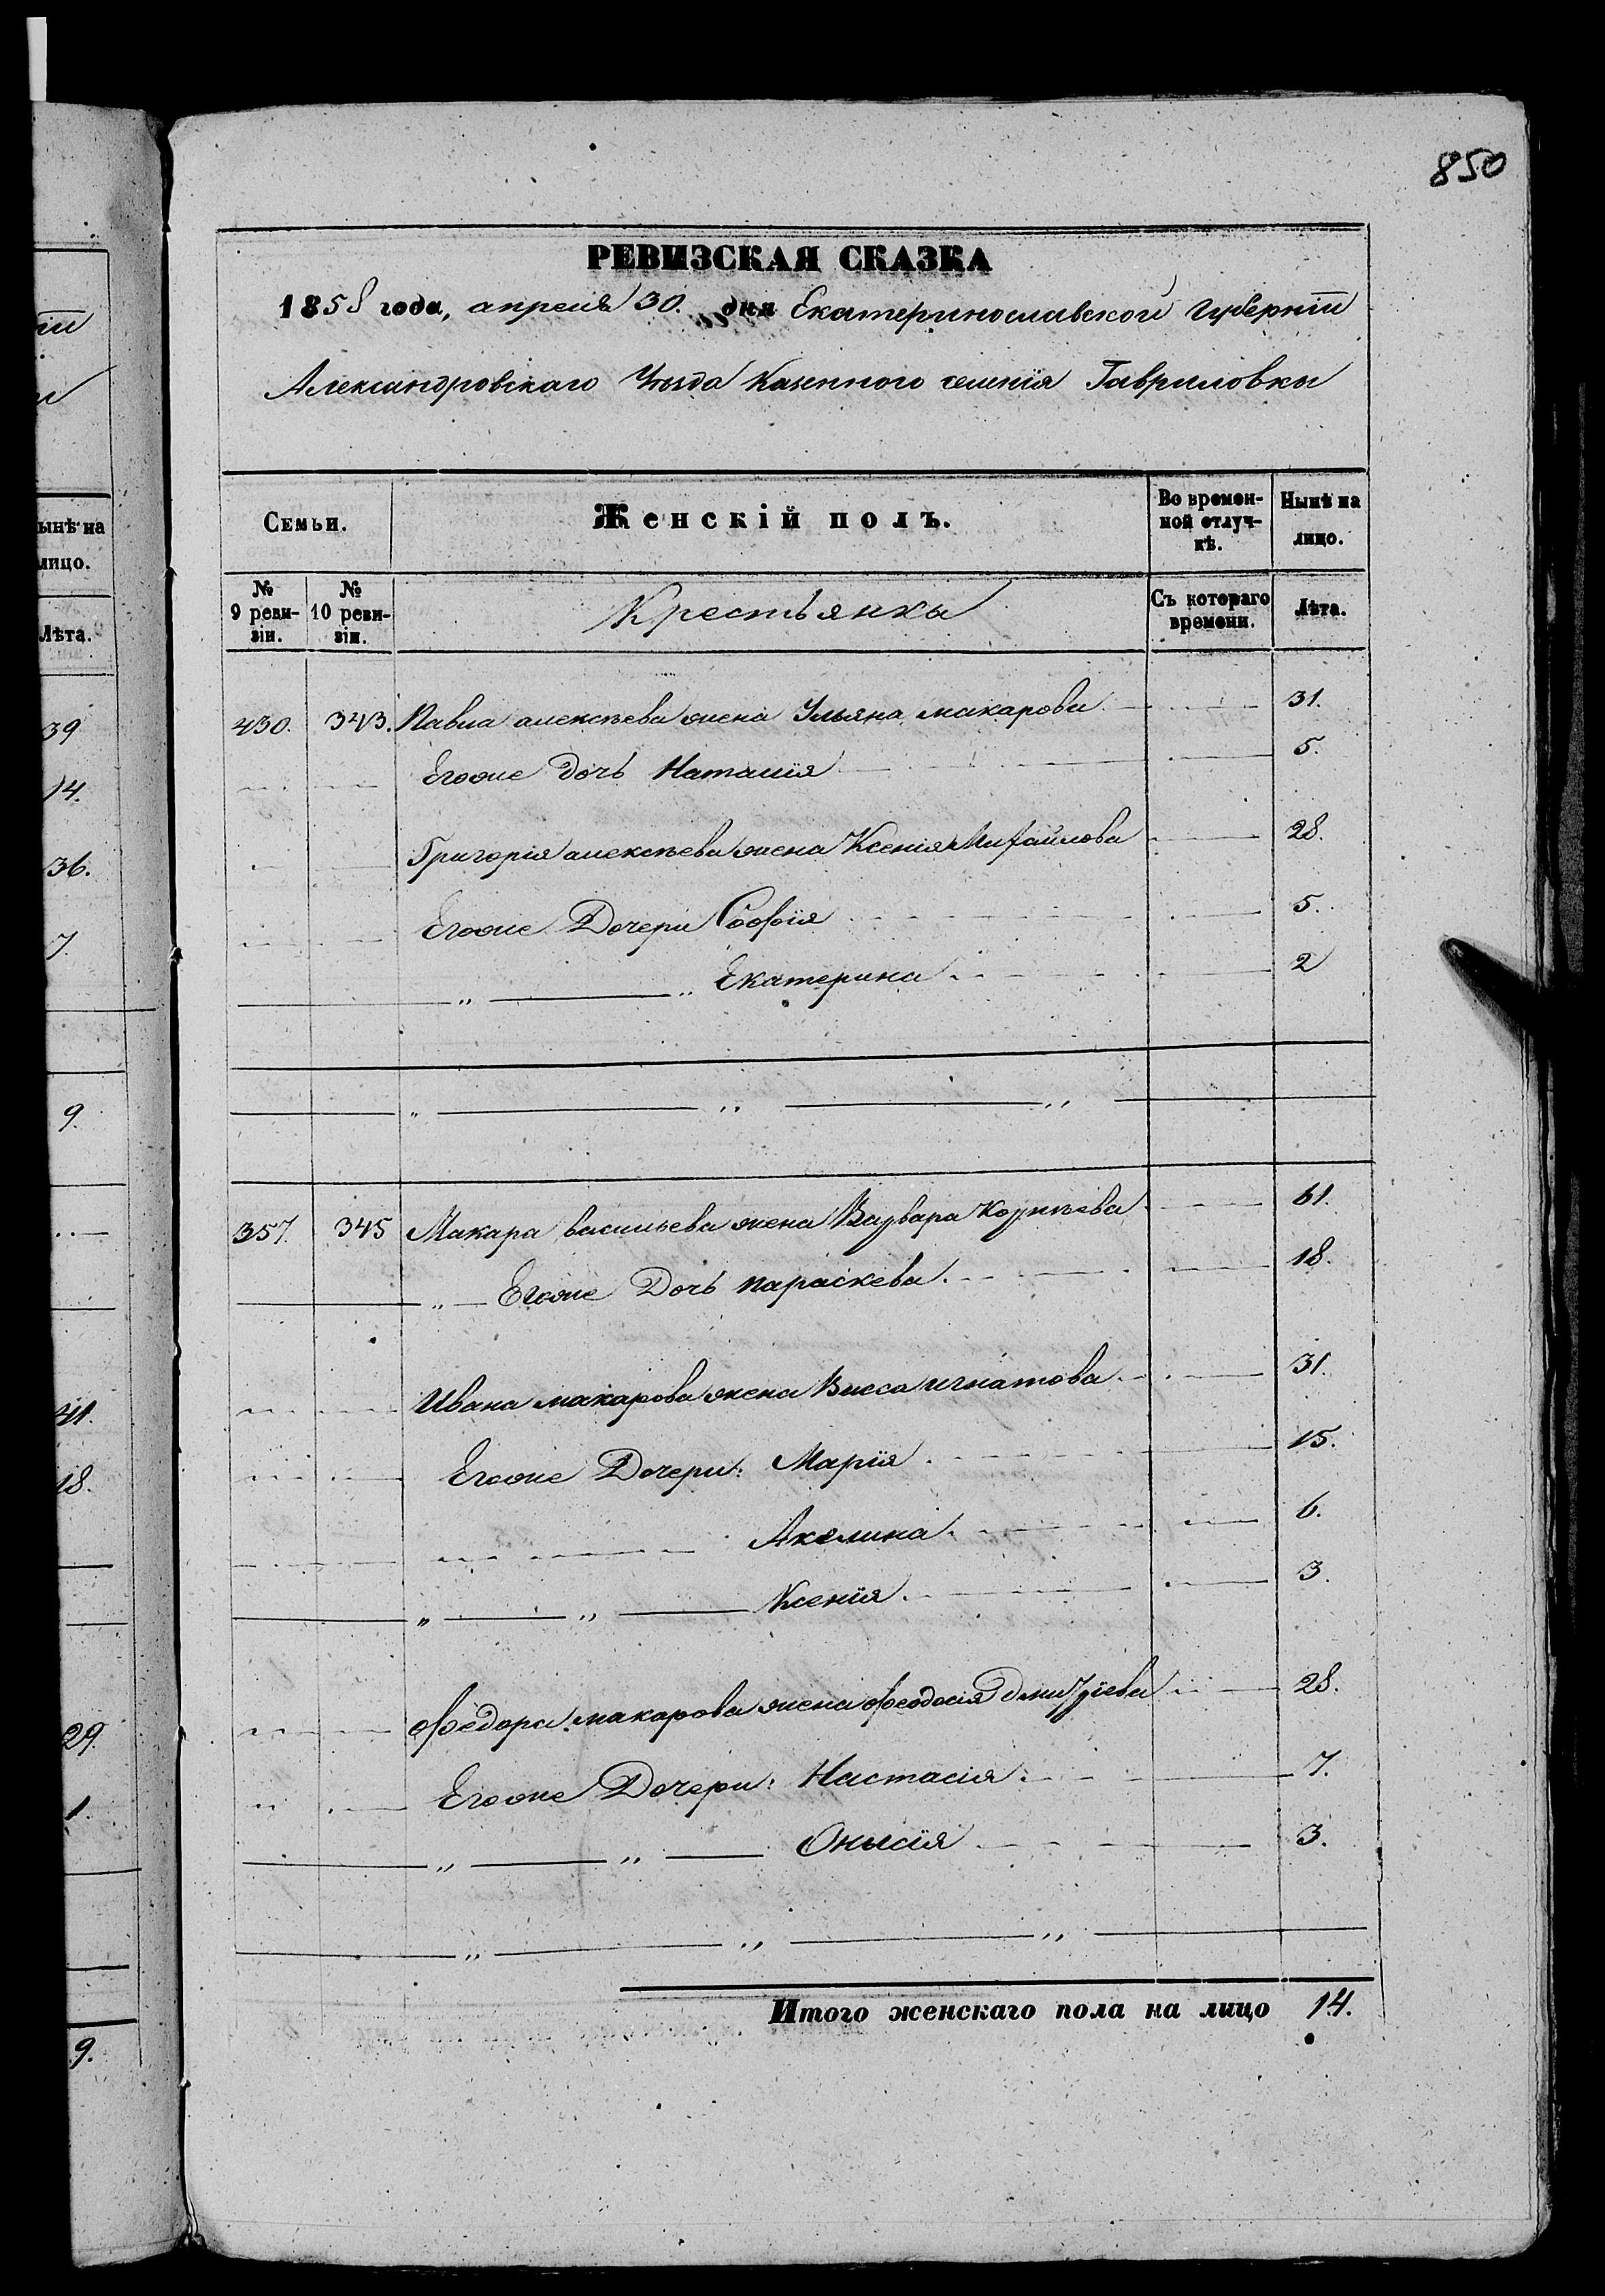 850
РЕВИЗСКАЯ СКАЗКА
1858 года, апреля 30. дня Екатеринославской Губерніи
Александровскаго Уѣзда Казенного селенія Гавриловки
Семьи. Женскій полъ. Во времен-ной отлуч-кѣ. Нынѣ на лицо.
№ 9 реви-зіи. № 10 реви-зіи. Крестьянки Съ котораго времени. Лѣта.
430. 343. Павла алексѣева жена Ульяна макарова 31.
Егоже дочь Наталія 5.
Григорія алексѣева жена Ксенія Михайлова 28.
Егоже Дочери Софія 5.
Екатерина 2
357. 345 Макара васильева жена Варвара Корнѣева 61.
Егоже Дочь параскева. 18.
Ивана макарова жена Васса игнатова 31.
Егоже Дочери: Марія 15.
Акилина 6.
Ксенія 3.
Федора макарова жена Феодосія Дмитріева 28.
Егоже Дочери: Настасія 7.
Онисія 3.
Итого женскаго пола на лицо 14.
ніи
ынѣ на
лицо.
Лѣта.
39
14.
36.
7.
9.
41.
18.
29.
1.
9.